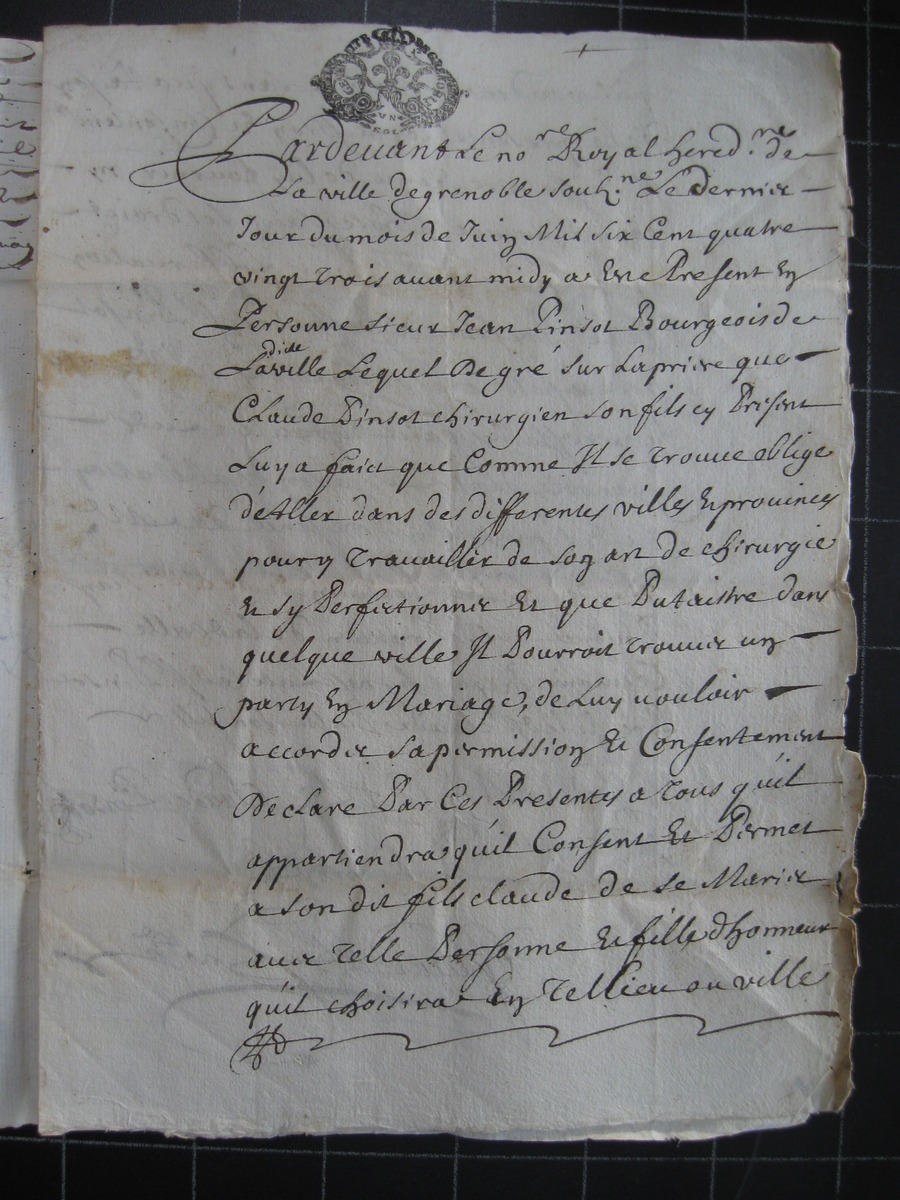 Pardevant Le no.re Royal hered.re de
La ville de grenoble soub.ne Le dernier
Jour du mois de Juin Mil six Cent quatre
vingt trois avant midy a Este Present En
Personne sieur Jean Pinsot Bourgeois de
Ladicte ville Lequel De gré sur La priere que
Claude Pinsot chirurgien son fils cy Present
Luy a faict que Comme Il se trouve oblige
d'Aller dans des differentes villes Et provinces
pour y travailler de son art de chirurgie
Et sy Perfectionner Et que Putaistre dans
quelque ville Il Pourroit trouver un
party En Mariage, de Luy vouloir
accorder sa permission Et Consentement
Declare Par Ces Presentes a tous qu'il
appartiendra qu'il Consent Et Permet
a son dit fils claude de se Marier
avec telle Personne Et fille d'honneur
qu'il choisira En tel lieu ou ville